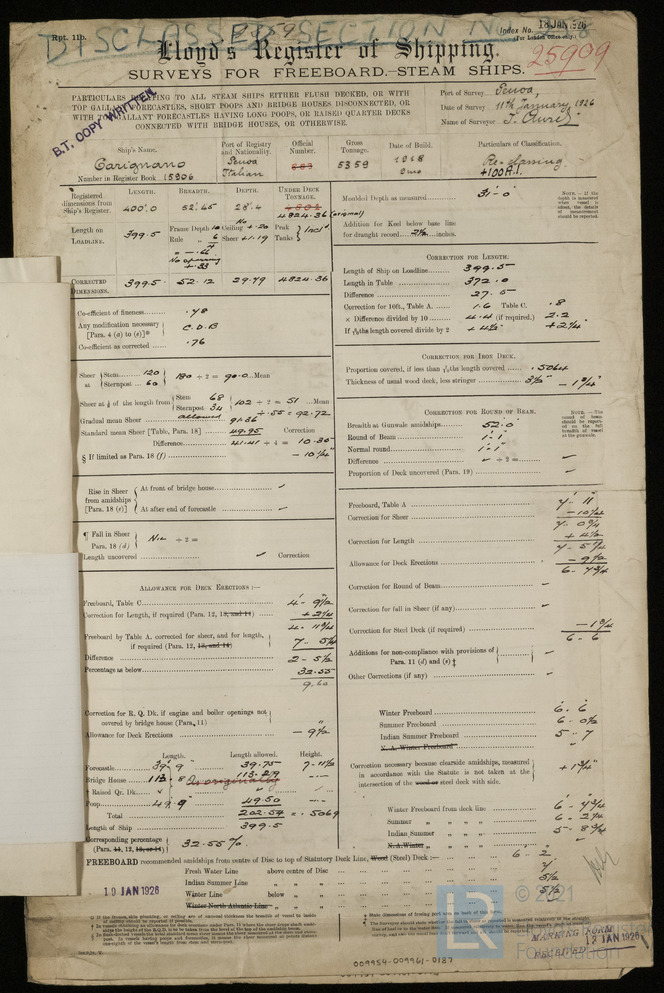 Rpt. 11b.
DISCLASSED SECTION No
18 JAN 1926
Index No.
(For London Office only.)
25909
Lloyd's Register of Shipping.
SURVEYS FOR FREEBOARD.—STEAM SHIPS.
PARTICULARS RELATING TO ALL STEAM SHIPS EITHER FLUSH DECKED, OR WITH
TOP GALLANT FORECASTLES, SHORT POOPS AND BRIDGE HOUSES DISCONNECTED, OR
WITH TOP GALLANT FORECASTLES HAVING LONG POOPS, OR RAISED QUARTER DECKS
CONNECTED WITH BRIDGE HOUSES, OR OTHERWISE.
B.T. COPY WRITTEN.
Port of Survey Genoa,
Date of Survey 11th January, 1926
Name of Surveyor
Ship's Name.
Port of Registry and Nationality.
Official Number.
Gross Tonnage.
Date of Build.
Particulars of Classification.
Carignano
Genoa
Italian
5359
1918
9mo
Re-classing
+100A.1.
Number in Register Book 15906
Registered dimensions from Ship's Register.
LENGTH. BREADTH. DEPTH. UNDER DECK TONNAGE.
400'.0 52'.45 28'.4 4824.36 (original)
Length on LOADLINE.
399.5
Frame Depth
Rule
No opening
+.33
Ceiling +.20
Sheer +1.19
Peak Tanks } Incl.
CORRECTED DIMENSIONS.
399.5 52.12 29.79 4824.36
Moulded Depth as measured 31'-0"
Addition for Keel below base line
for draught record 2½ inches.
NOTE.—If the depth is measured when vessel is afloat, the details of measurement should be reported.
Co-efficient of fineness .78
Any modification necessary [Para. 4 (a) to (e)]* C.D.B
Co-efficient as corrected .76
CORRECTION FOR LENGTH.
Length of Ship on Loadline 399.5
Length in Table 372.0
Difference 27.5
Correction for 10ft., Table A. 1.6 Table C. .8
× Difference divided by 10 4.4 (if required.) 2.2
If 6/10ths length covered divide by 2 +4½" +2¼"
CORRECTION FOR IRON DECK.
Proportion covered, if less than 7/10ths length covered .5064
Thickness of usual wood deck, less stringer 3½" - 1¾"
Sheer at { Stem 120 Sternpost 60 } 180 ÷ 2 = 90.0 Mean
Sheer at ⅛ of the length from { Stem 68 Sternpost 34 } 102 ÷ 2 = 51 Mean
allowed
÷ .55 = 92.72
Gradual mean Sheer 91.36
Standard mean Sheer [Table, Para. 18] 49.95 Correction
Difference 41.41 ÷ 4 = 10.35
§ If limited as Para. 18 (f) - 10¼"
CORRECTION FOR ROUND OF BEAM.
Breadth at Gunwale amidships 52.0
Round of Beam 1'.1"
Normal round 1'.1"
Difference ÷ 2 =
Proportion of Deck uncovered (Para. 19)
NOTE.—The round of beam should be reported on the full breadth of vessel at the gunwale.
Rise in Sheer from amidships [Para. 18 (e)]
At front of bridge house
At after end of forecastle
¶ Fall in Sheer Para. 18 (d) } Nil ÷ 2 =
Length uncovered Correction
Freeboard, Table A 7. 11
Correction for Sheer - 10¼
7. 0¾
Correction for Length + 4½
7. 5¼
Allowance for Deck Erections - 9½
6. 7¾
Correction for Round of Beam
Correction for fall in Sheer (if any)
Correction for Steel Deck (if required) - 1¾
6. 6
Additions for non-compliance with provisions of Para. 11 (d) and (e) ‡
Other Corrections (if any)
ALLOWANCE FOR DECK ERECTIONS:—
Freeboard, Table C 4. 9½
Correction for Length, if required (Para. 12, 13, and 14) + 2¼
4. 11¾
Freeboard by Table A, corrected for sheer, and for length, if required (Para. 12, 13, and 14) 7. 5¼
Difference 2. 5½
Percentage as below 32.55
9.60
Correction for R. Q. Dk. if engine and boiler openings not covered by bridge house (Para. 11)
Allowance for Deck Erections - 9½
Length. Length allowed. Height.
Forecastle 39' 9" 39.75 7.11½
Bridge House 113.8 113.29
as originally
† Raised Qr. Dk.
Poop 49.9" 49.50
Total 202.54 = .5069
Length of Ship 399.5
Corresponding percentage (Para. 11, 12, 13, or 14) } 32.55 %
Winter Freeboard 6. 6
Summer Freeboard 6. 0½
Indian Summer Freeboard 5. 7
N. A. Winter Freeboard
Correction necessary because clearside amidships, measured in accordance with the Statute is not taken at the intersection of the wood or steel deck with side. + 1¾"
Winter Freeboard from deck line 6. 7¾
Summer „ „ „ „ 6. 2¼
Indian Summer „ „ „ „ 5. 8¾
N.A. Winter „ „ „ „
FREEBOARD recommended amidships from centre of Disc to top of Statutory Deck Line, Wood (Steel) Deck:— 6. 2
Fresh Water Line above centre of Disc
Indian Summer Line „ „ 5½
Winter Line below „ „ 5½
Winter North Atlantic Line „ „
19 JAN 1926
LR
© 2021
Foundation
MARKING FORM
RECEIVED
18 JAN 1926
009954-009961-0187